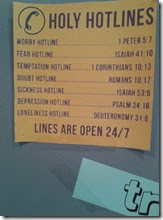 HOLY HOTLINES
WORRY HOTLINE 1 PETER 5:7
FEAR HOTLINE ISAIAH 41:10
TEMPTATION HOTLINE 1 CORINTHIANS 10:13
DOUBT HOTLINE ROMANS 10:17
SICKNESS HOTLINE ISAIAH 53:5
DEPRESSION HOTLINE PSALM 34:18
LONELINESS HOTLINE DEUTERONOMY 31:6
LINES ARE OPEN 24/7
tr